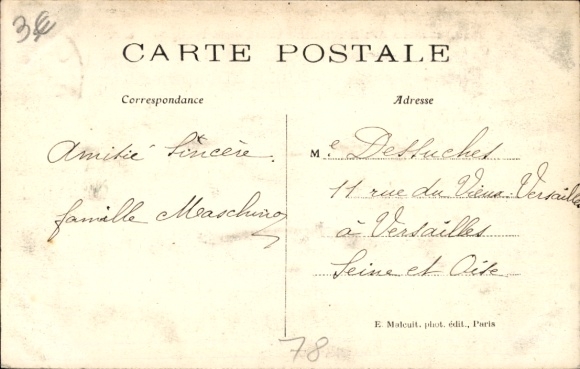 3€
CARTE POSTALE
Correspondance
Adresse
Amitié Sincère.
famille
M.e Destuches
11 rue du Vieux-Versailles
à Versailles
Seine et Oise
E. Malcuit, phot. édit., Paris
78